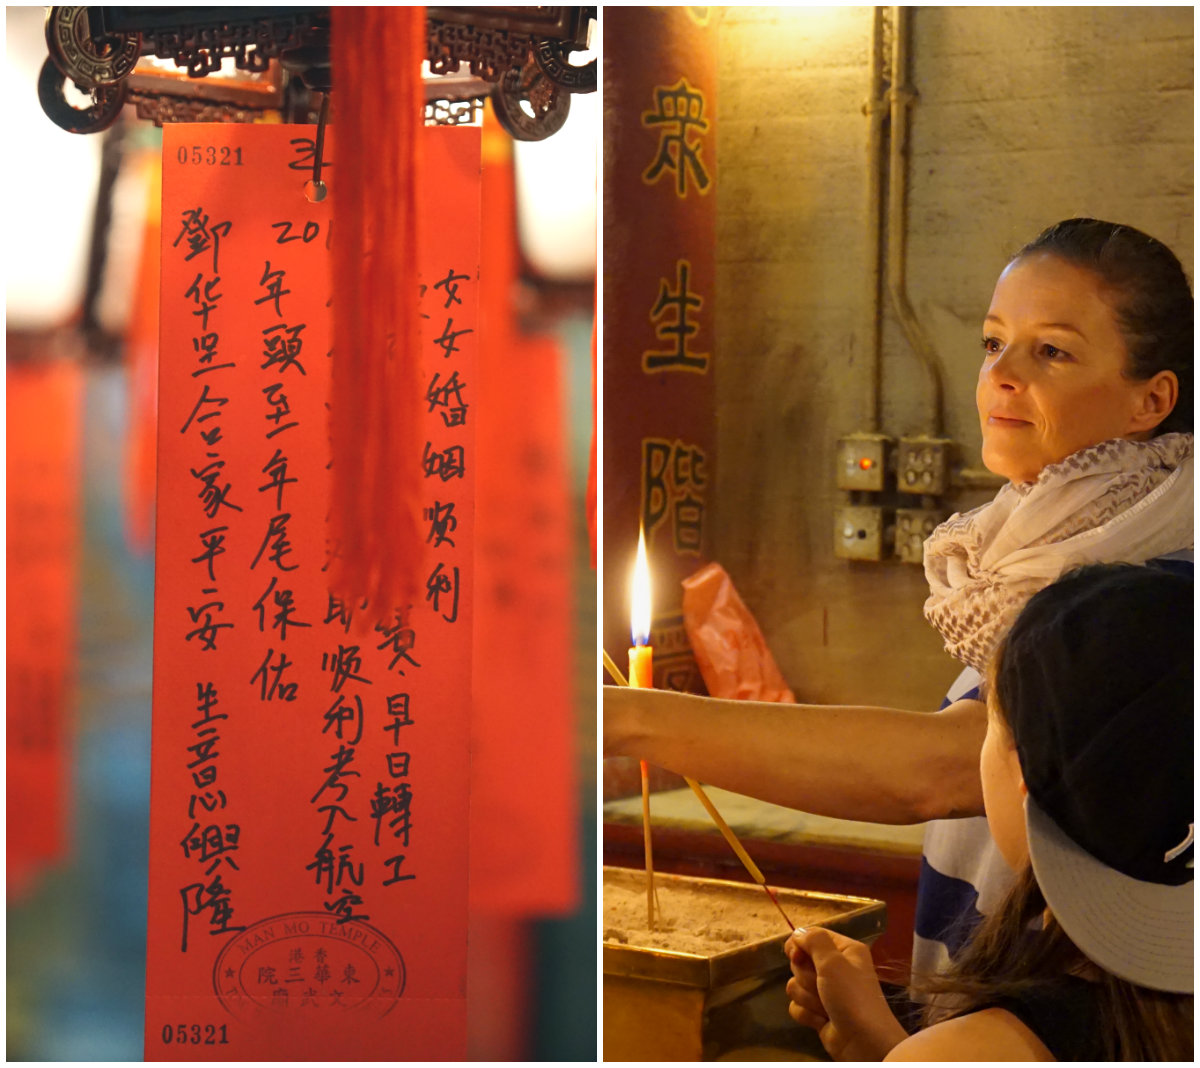 05321
女女婚姻顺利
早日轉工
顺利考入航空
20
年頭至年尾保佑
鄧华坚合家平安 生意興隆
MAN MO TEMPLE
香港
東華三院
文武廟
05321
衆生階